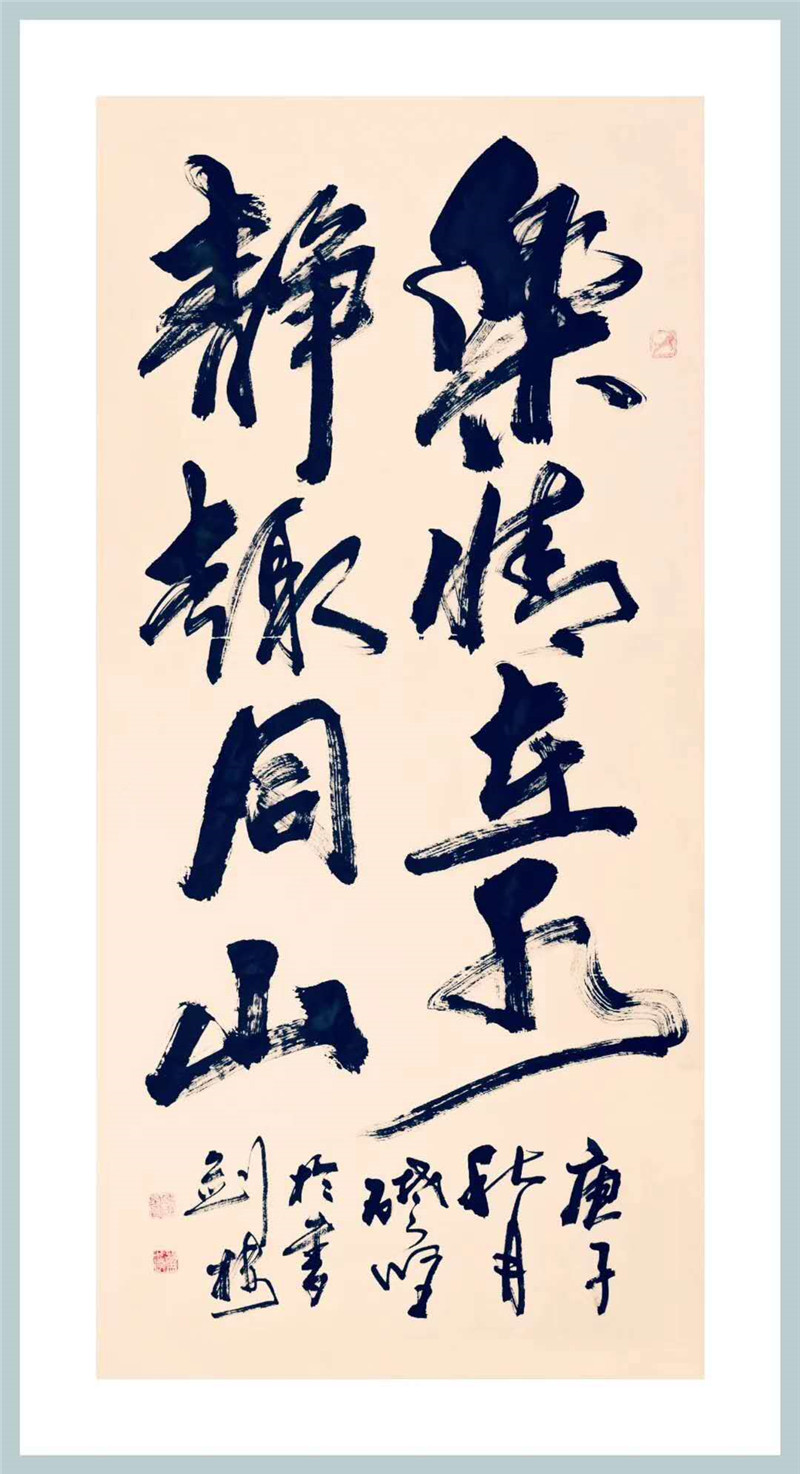 樂情在水
静趣同山
庚子
秋月
於書
剑楼